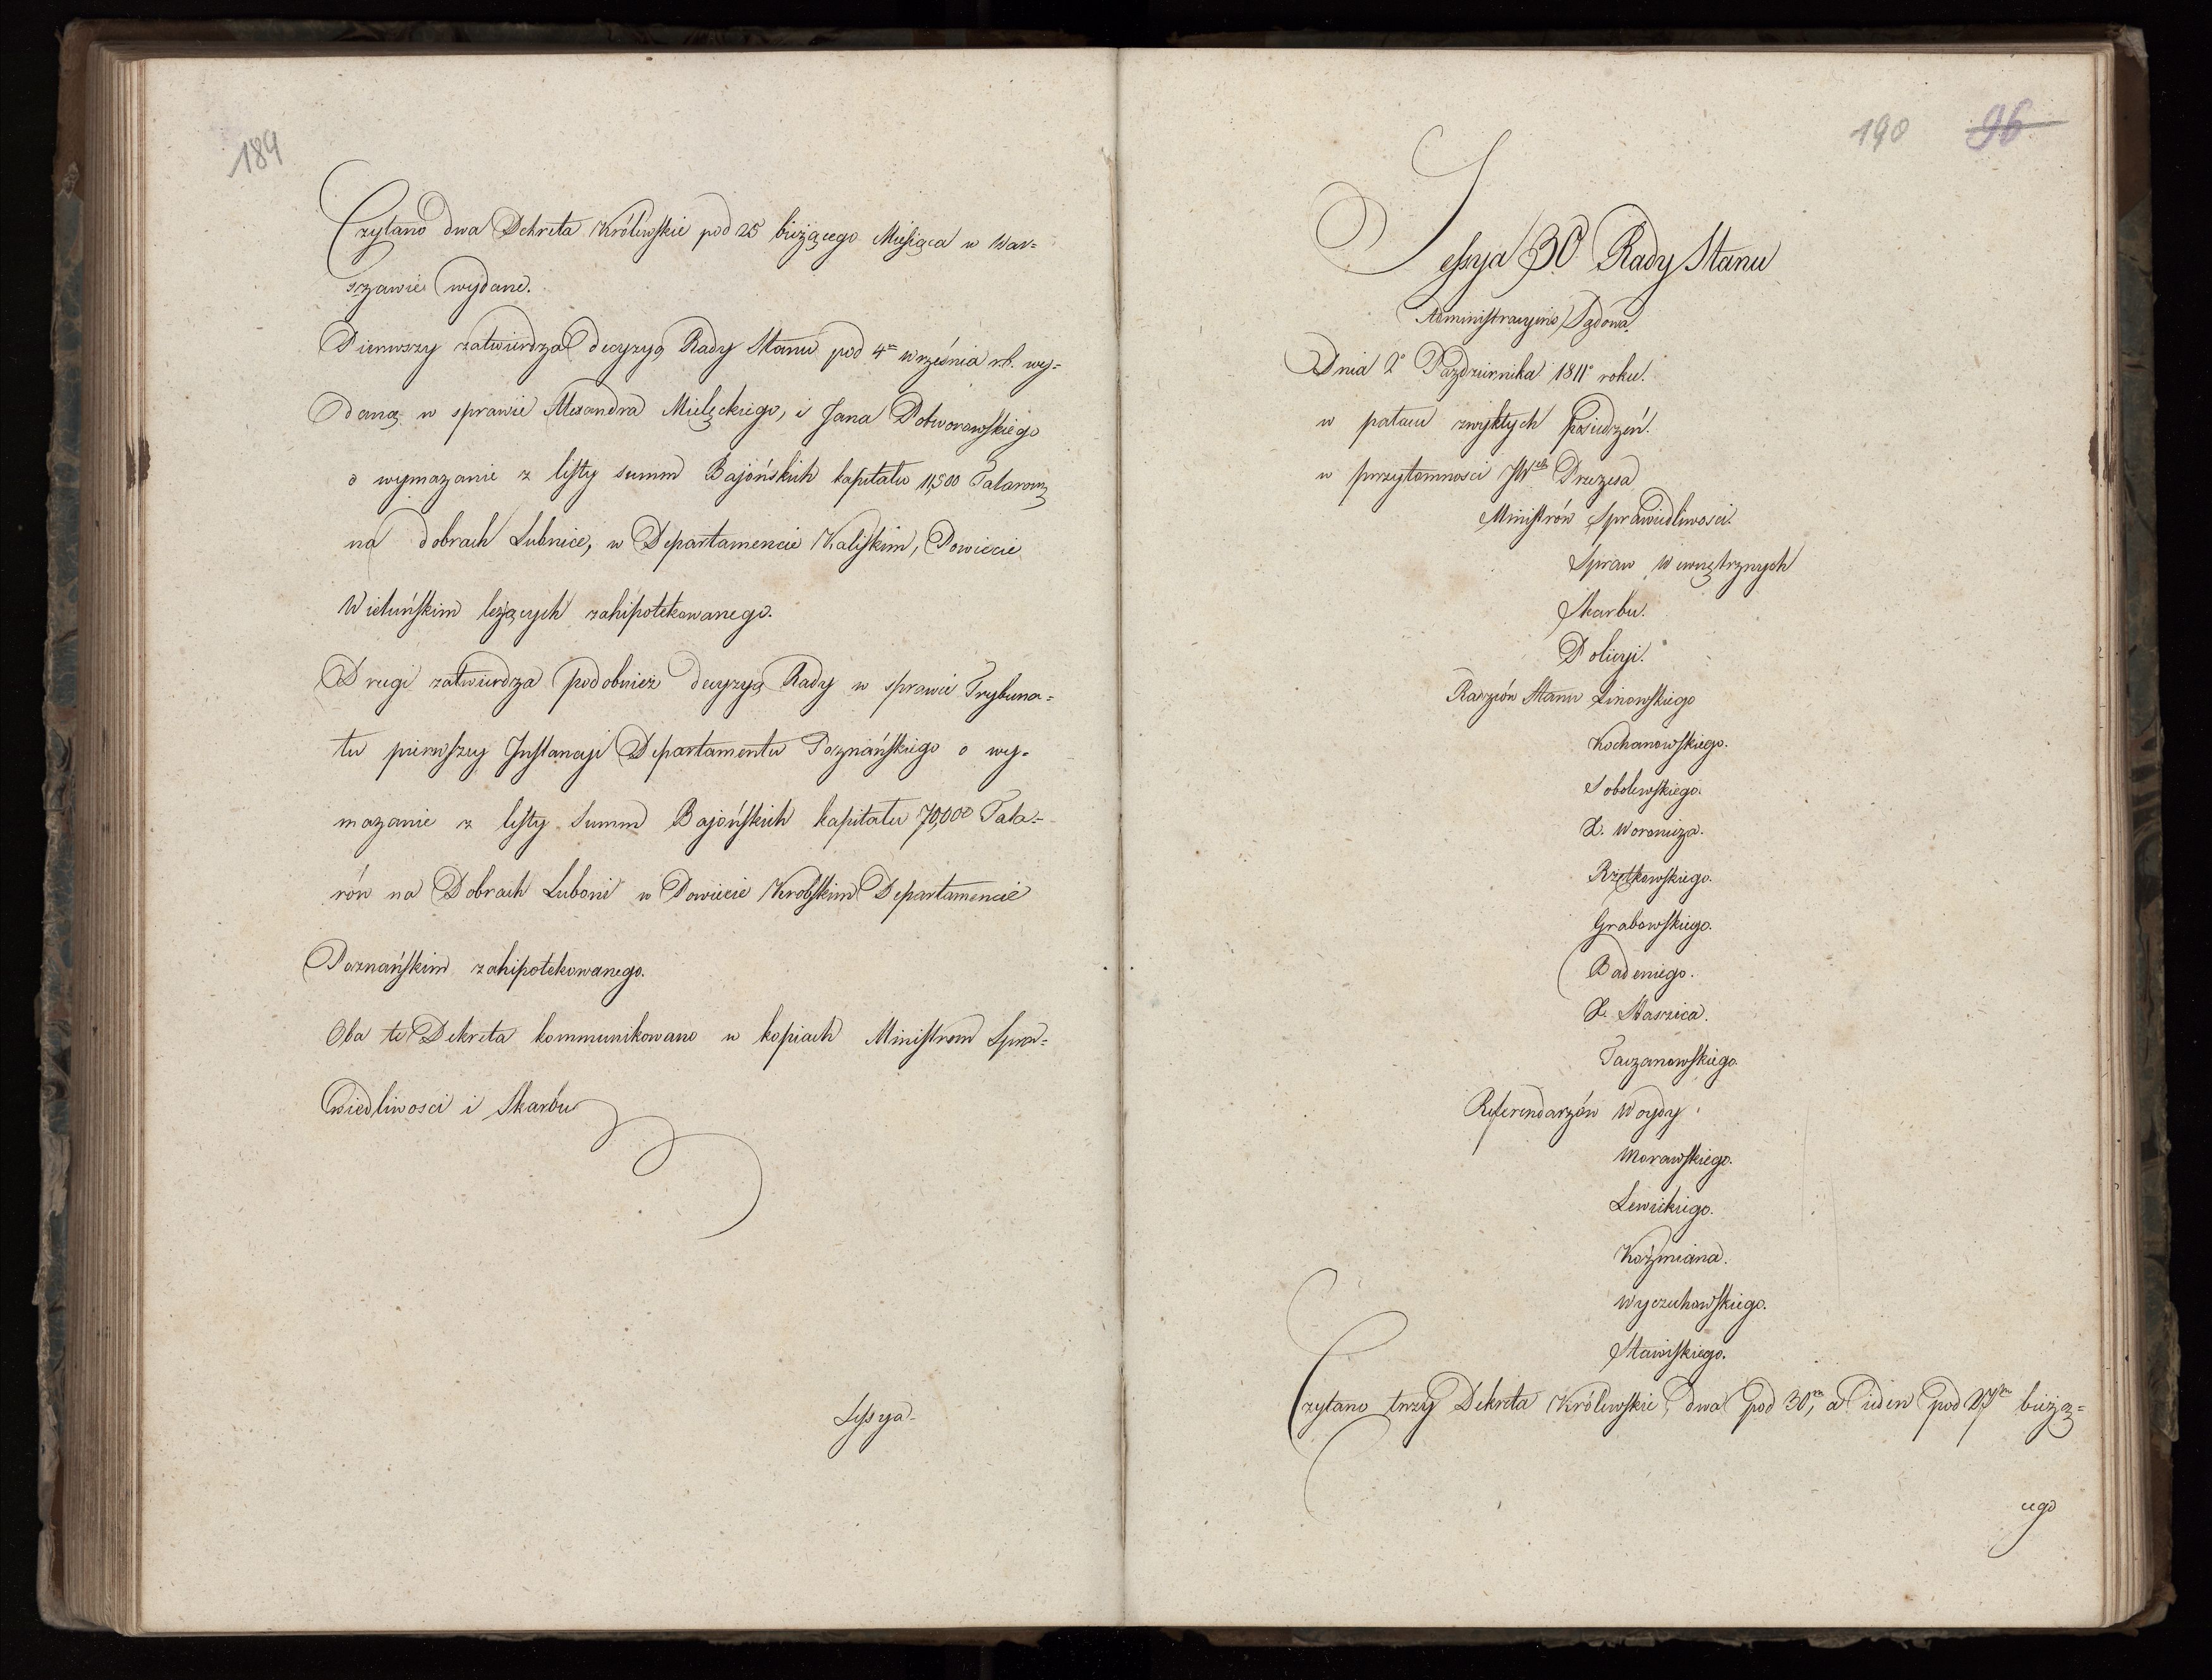 189
Czytano dwa Dekreta Królewskie pod 25 bieżącego Miesiąca w War=
szawie wydane.
Pierwszy zatwierdza decyzyą Rady Stanu pod 4ⁿ września r.b. wy=
daną w sprawie Alexandra Mielęckiego, i Jana Dobworowskiego
o wymazanie z listy summ Bajońskich kapitału 11,500 Talarow
na dobrach Lubnice, w Departamencie Kaliskim, Powiecie
Wieluńskim leżących zahipotekowanego.
Drugi zatwierdza podobnież decyzyą Rady w sprawie Trybuna=
łu pierwszey Instancyi Departamentu Poznańskiego o wy=
mazanie z listy Summ Bajońskich kapitału 70,000 Tala=
rów na Dobrach Luboni w Powiecie Krobskim Departamencie
Poznańskim zahipotekowanego.
Oba te Dekreta kommunikowano w kopiach Ministrom Spra=
wiedliwosci i Skarbu
Sessya
190 96
Sessya 30 Rady Stanu
Administracyino Sądowa.
Dnia 2º Października 1811º roku.
w pałacu zwykłych posiedzeń.
w przytomnosci JW Prezesa
Ministrów Sprawiedliwosci.
Spraw Wewnętrznych
Skarbu.
Policyi.
Radzców Stanu Linowskiego
Kochanowskiego.
Sobolewskiego.
X. Woronicza.
Rzętkowskiego.
Grabowskiego.
Badeniego.
X. Staszica.
Taczanowskiego
Referendarzów Woydy
Morawskiego.
Lewickiego.
Koźmiana.
Wyczechowskiego.
Stawiskiego.
Czytano trzy Dekreta Królewskie, dwa pod 30, a ieden pod 27 bieżą=
cego